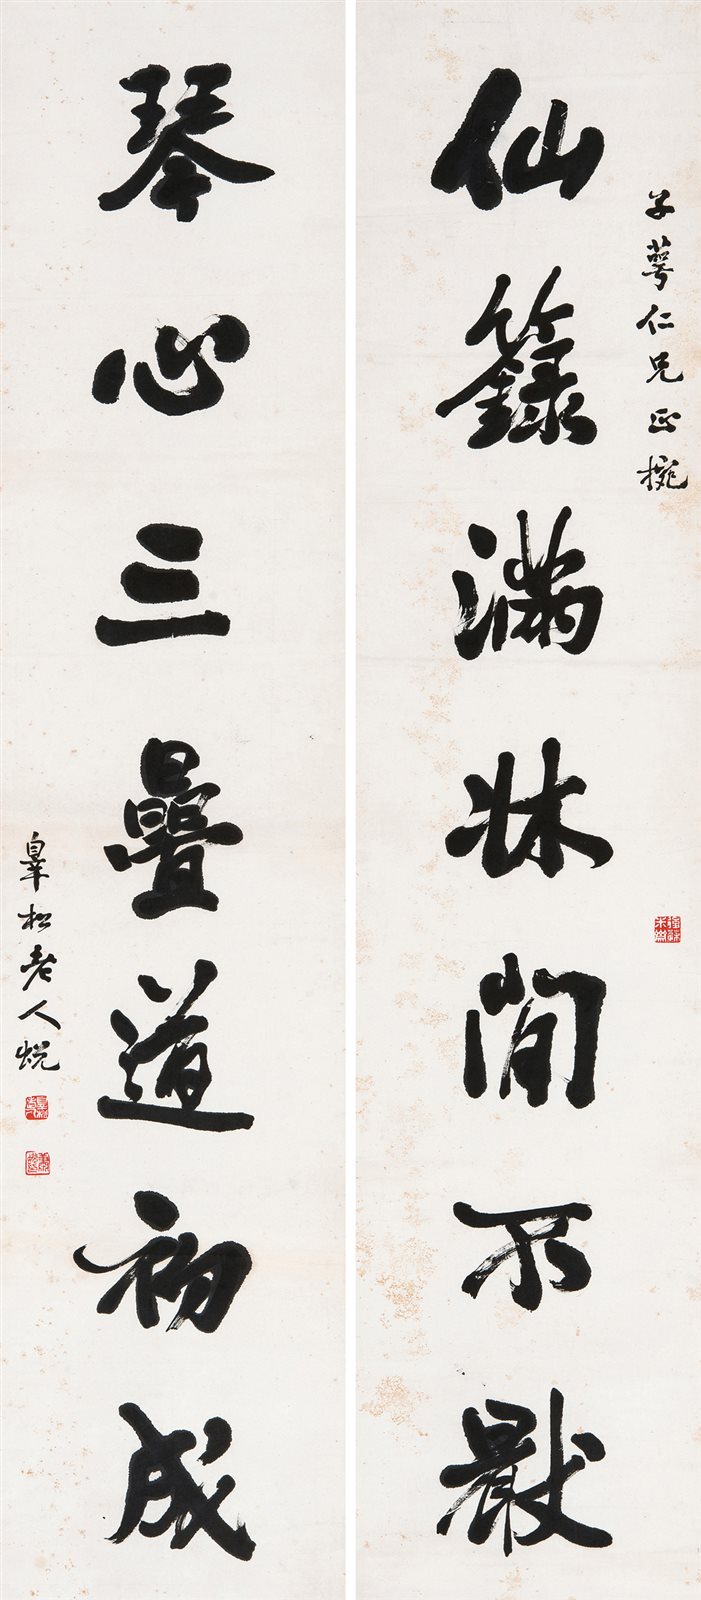 子萼仁兄正捥
仙籙滿牀閒不厭
琴心三疊道初成
皋松老人焜